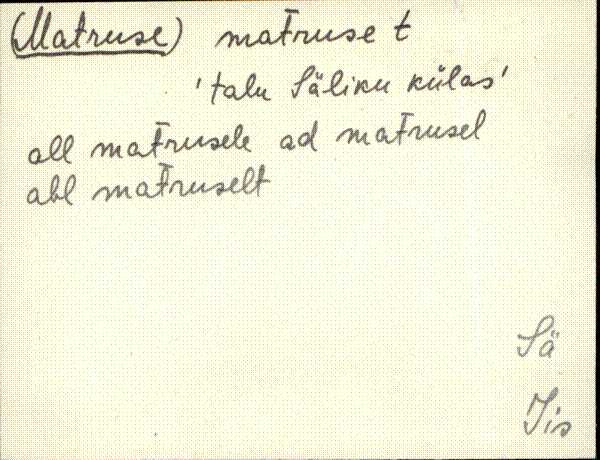 (Matruse) matruse t
'talu Säliku külas'
all matrusele ad matrusel
abl matruselt
Sä
Jis